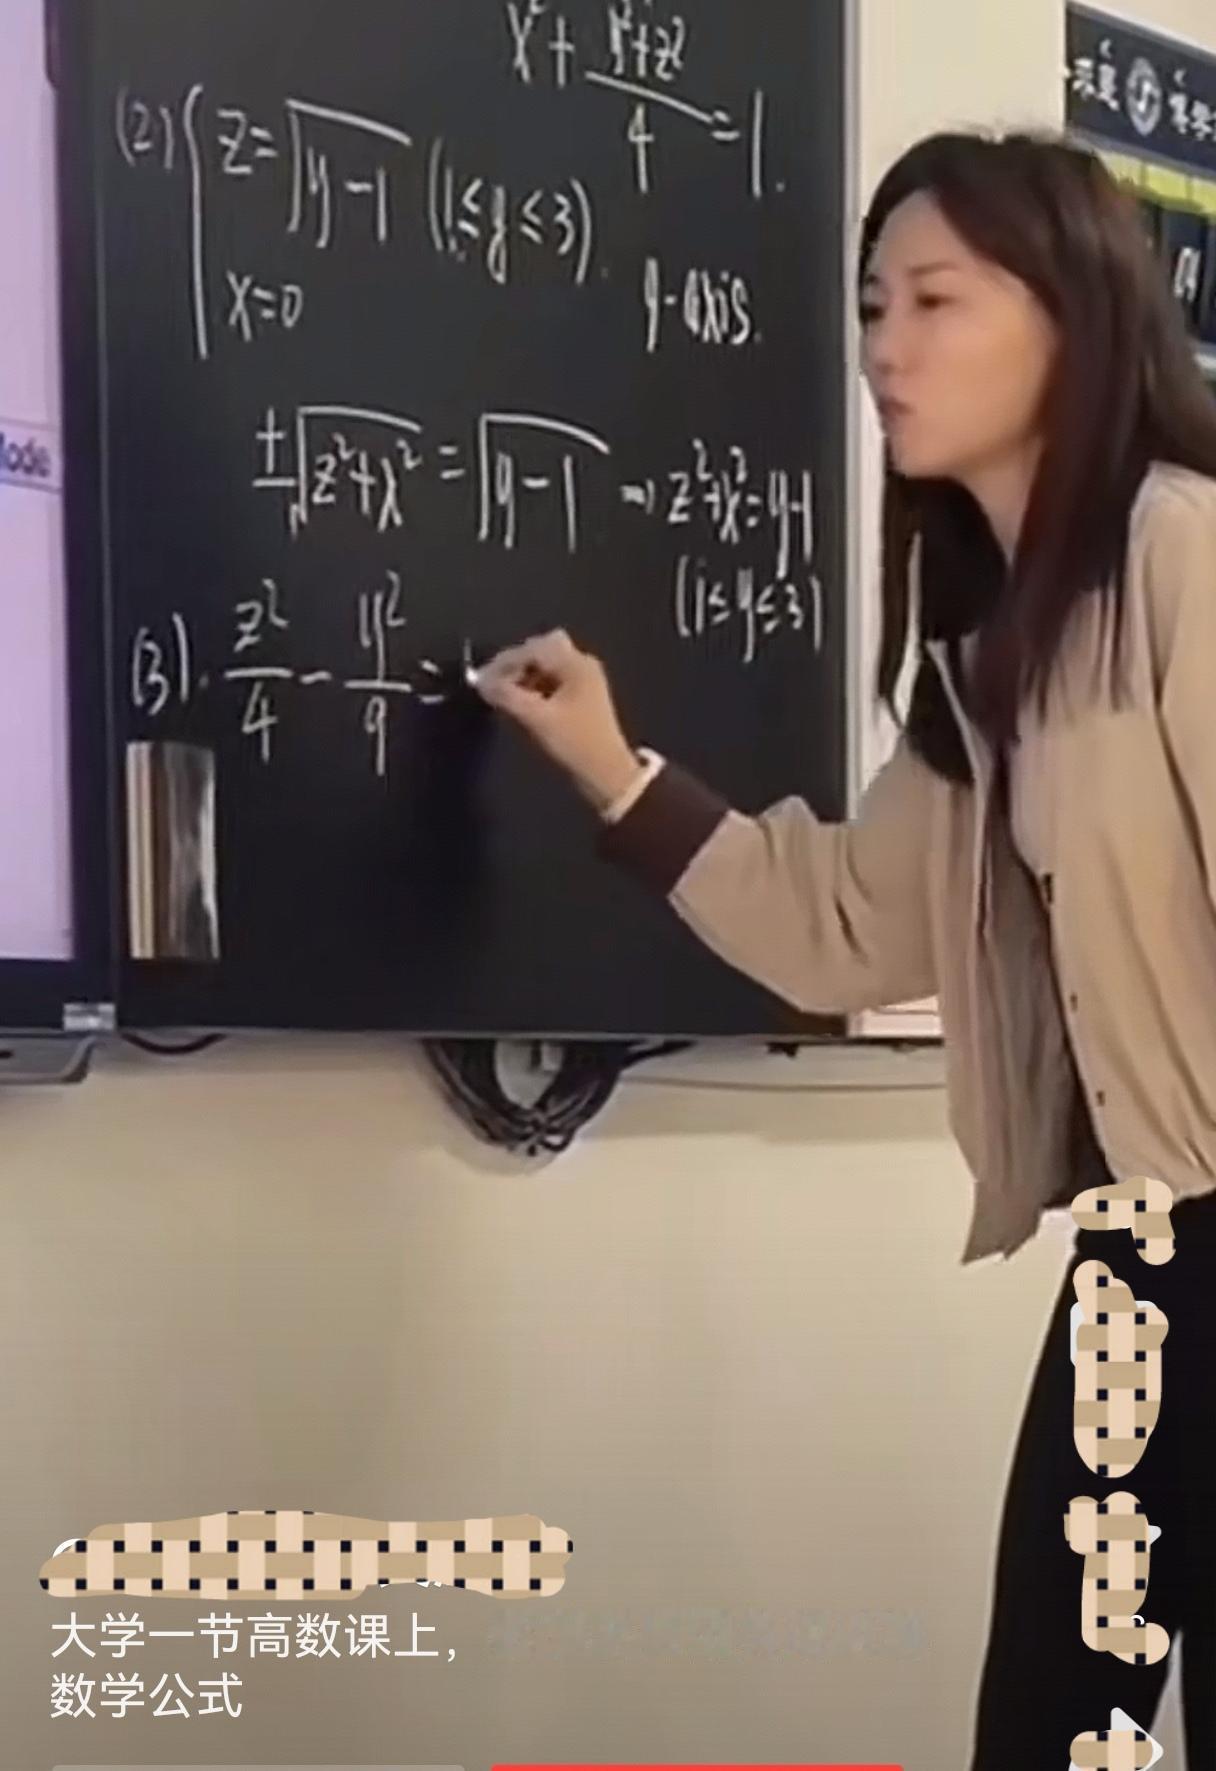 x²+ (y²+z²)/4 = 1.
(2) { z=√(y-1) (1≤y≤3).
x=0
y-axis.
±√(z²+x²) = √(y-1) ⇒ z²+x²=y-1
(1≤y≤3)
(3). z²/4 - y²/9 = 1
Mode
大学一节高数课上，
数学公式